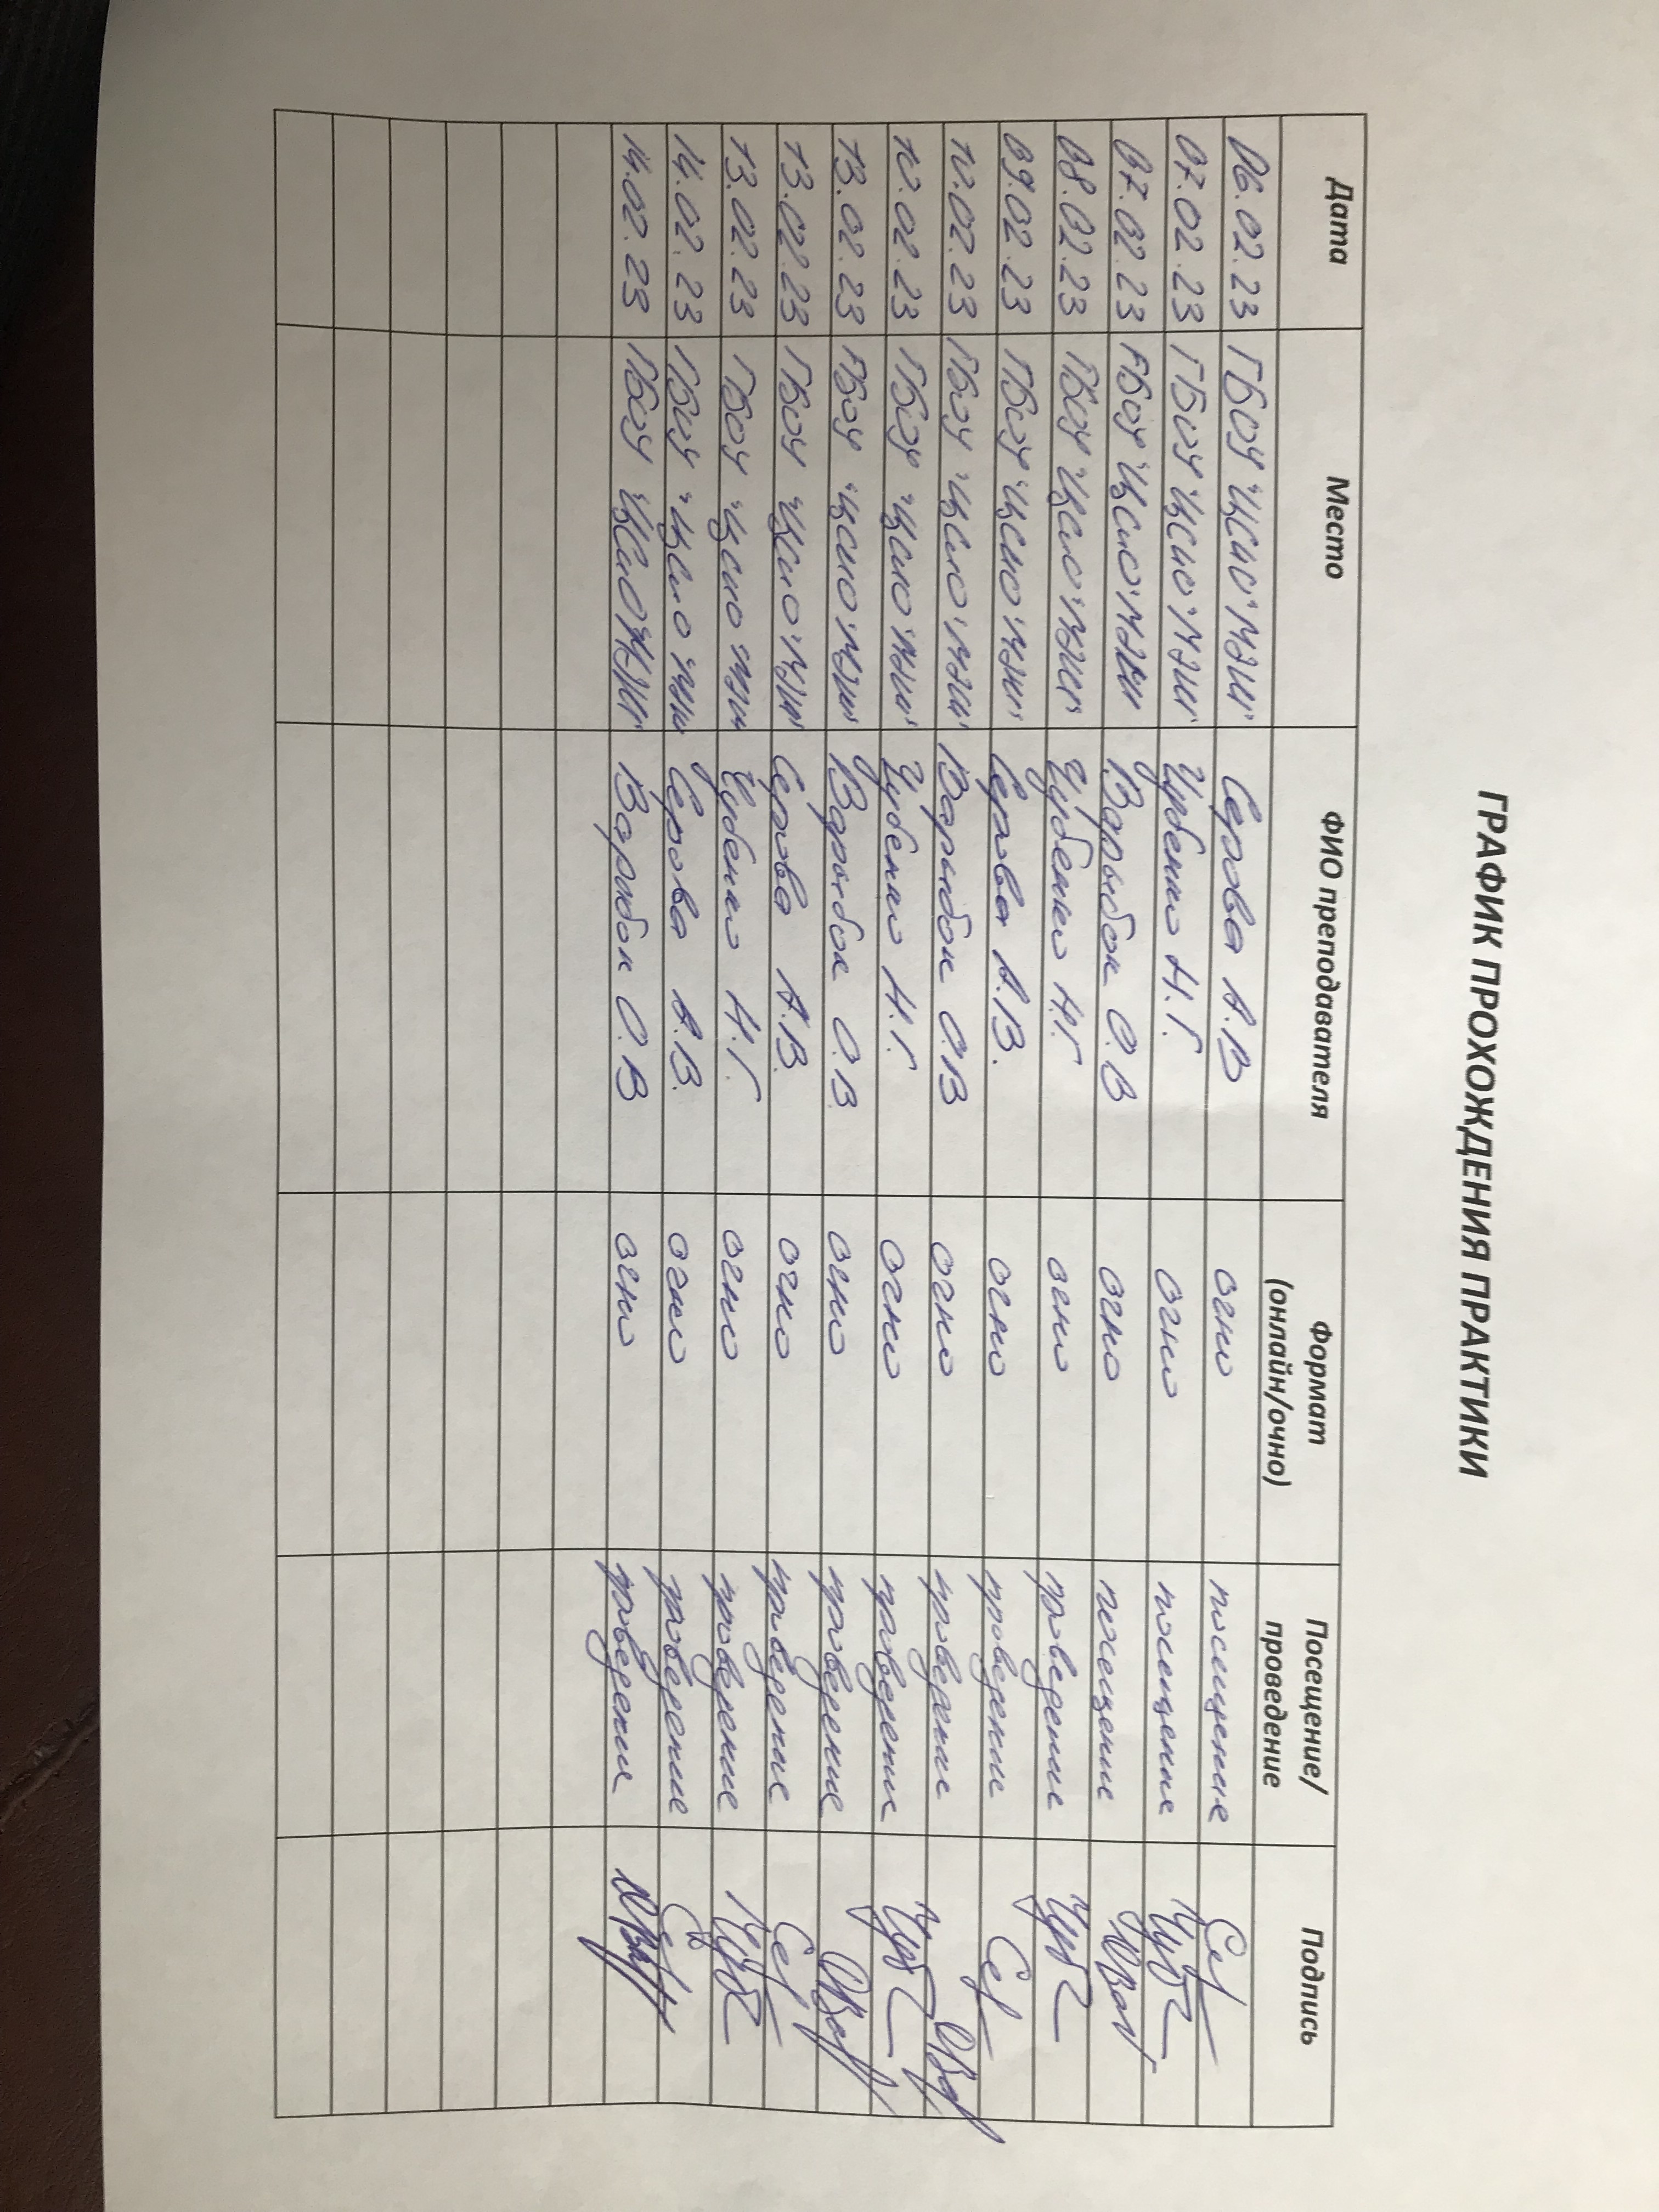 ГРАФИК ПРОХОЖДЕНИЯ ПРАКТИКИ
Дата Место ФИО преподавателя Формат (онлайн/очно) Посещение/ проведение Подпись
06.02.23 ГБОУ "ЦСиО" МЭШ" Серова А.В очно посещение
07.02.23 ГБОУ "ЦСиО" МЭШ" Цубенко Н.Г. очно посещение
07.02.23 ГБОУ "ЦСиО" МЭШ" О.В очно посещение
08.02.23 ГБОУ "ЦСиО" МЭШ" Цубенко Н.Г очно проведение
09.02.23 ГБОУ "ЦСиО" МЭШ" Серова А.В. очно проведение
10.02.23 ГБОУ "ЦСиО" МЭШ" О.В очно проведение
10.02.23 ГБОУ "ЦСиО" МЭШ" Цубенко Н.Г. очно проведение
13.02.23 ГБОУ "ЦСиО" МЭШ" О.В. очно проведение
13.02.23 ГБОУ "ЦСиО" МЭШ" Серова А.В. очно проведение
13.02.23 ГБОУ "ЦСиО" МЭШ" Цубенко Н.Г. очно проведение
14.02.23 ГБОУ "ЦСиО" МЭШ" Серова А.В. очно проведение
14.02.23 ГБОУ "ЦСиО" МЭШ" О.В очно проведение